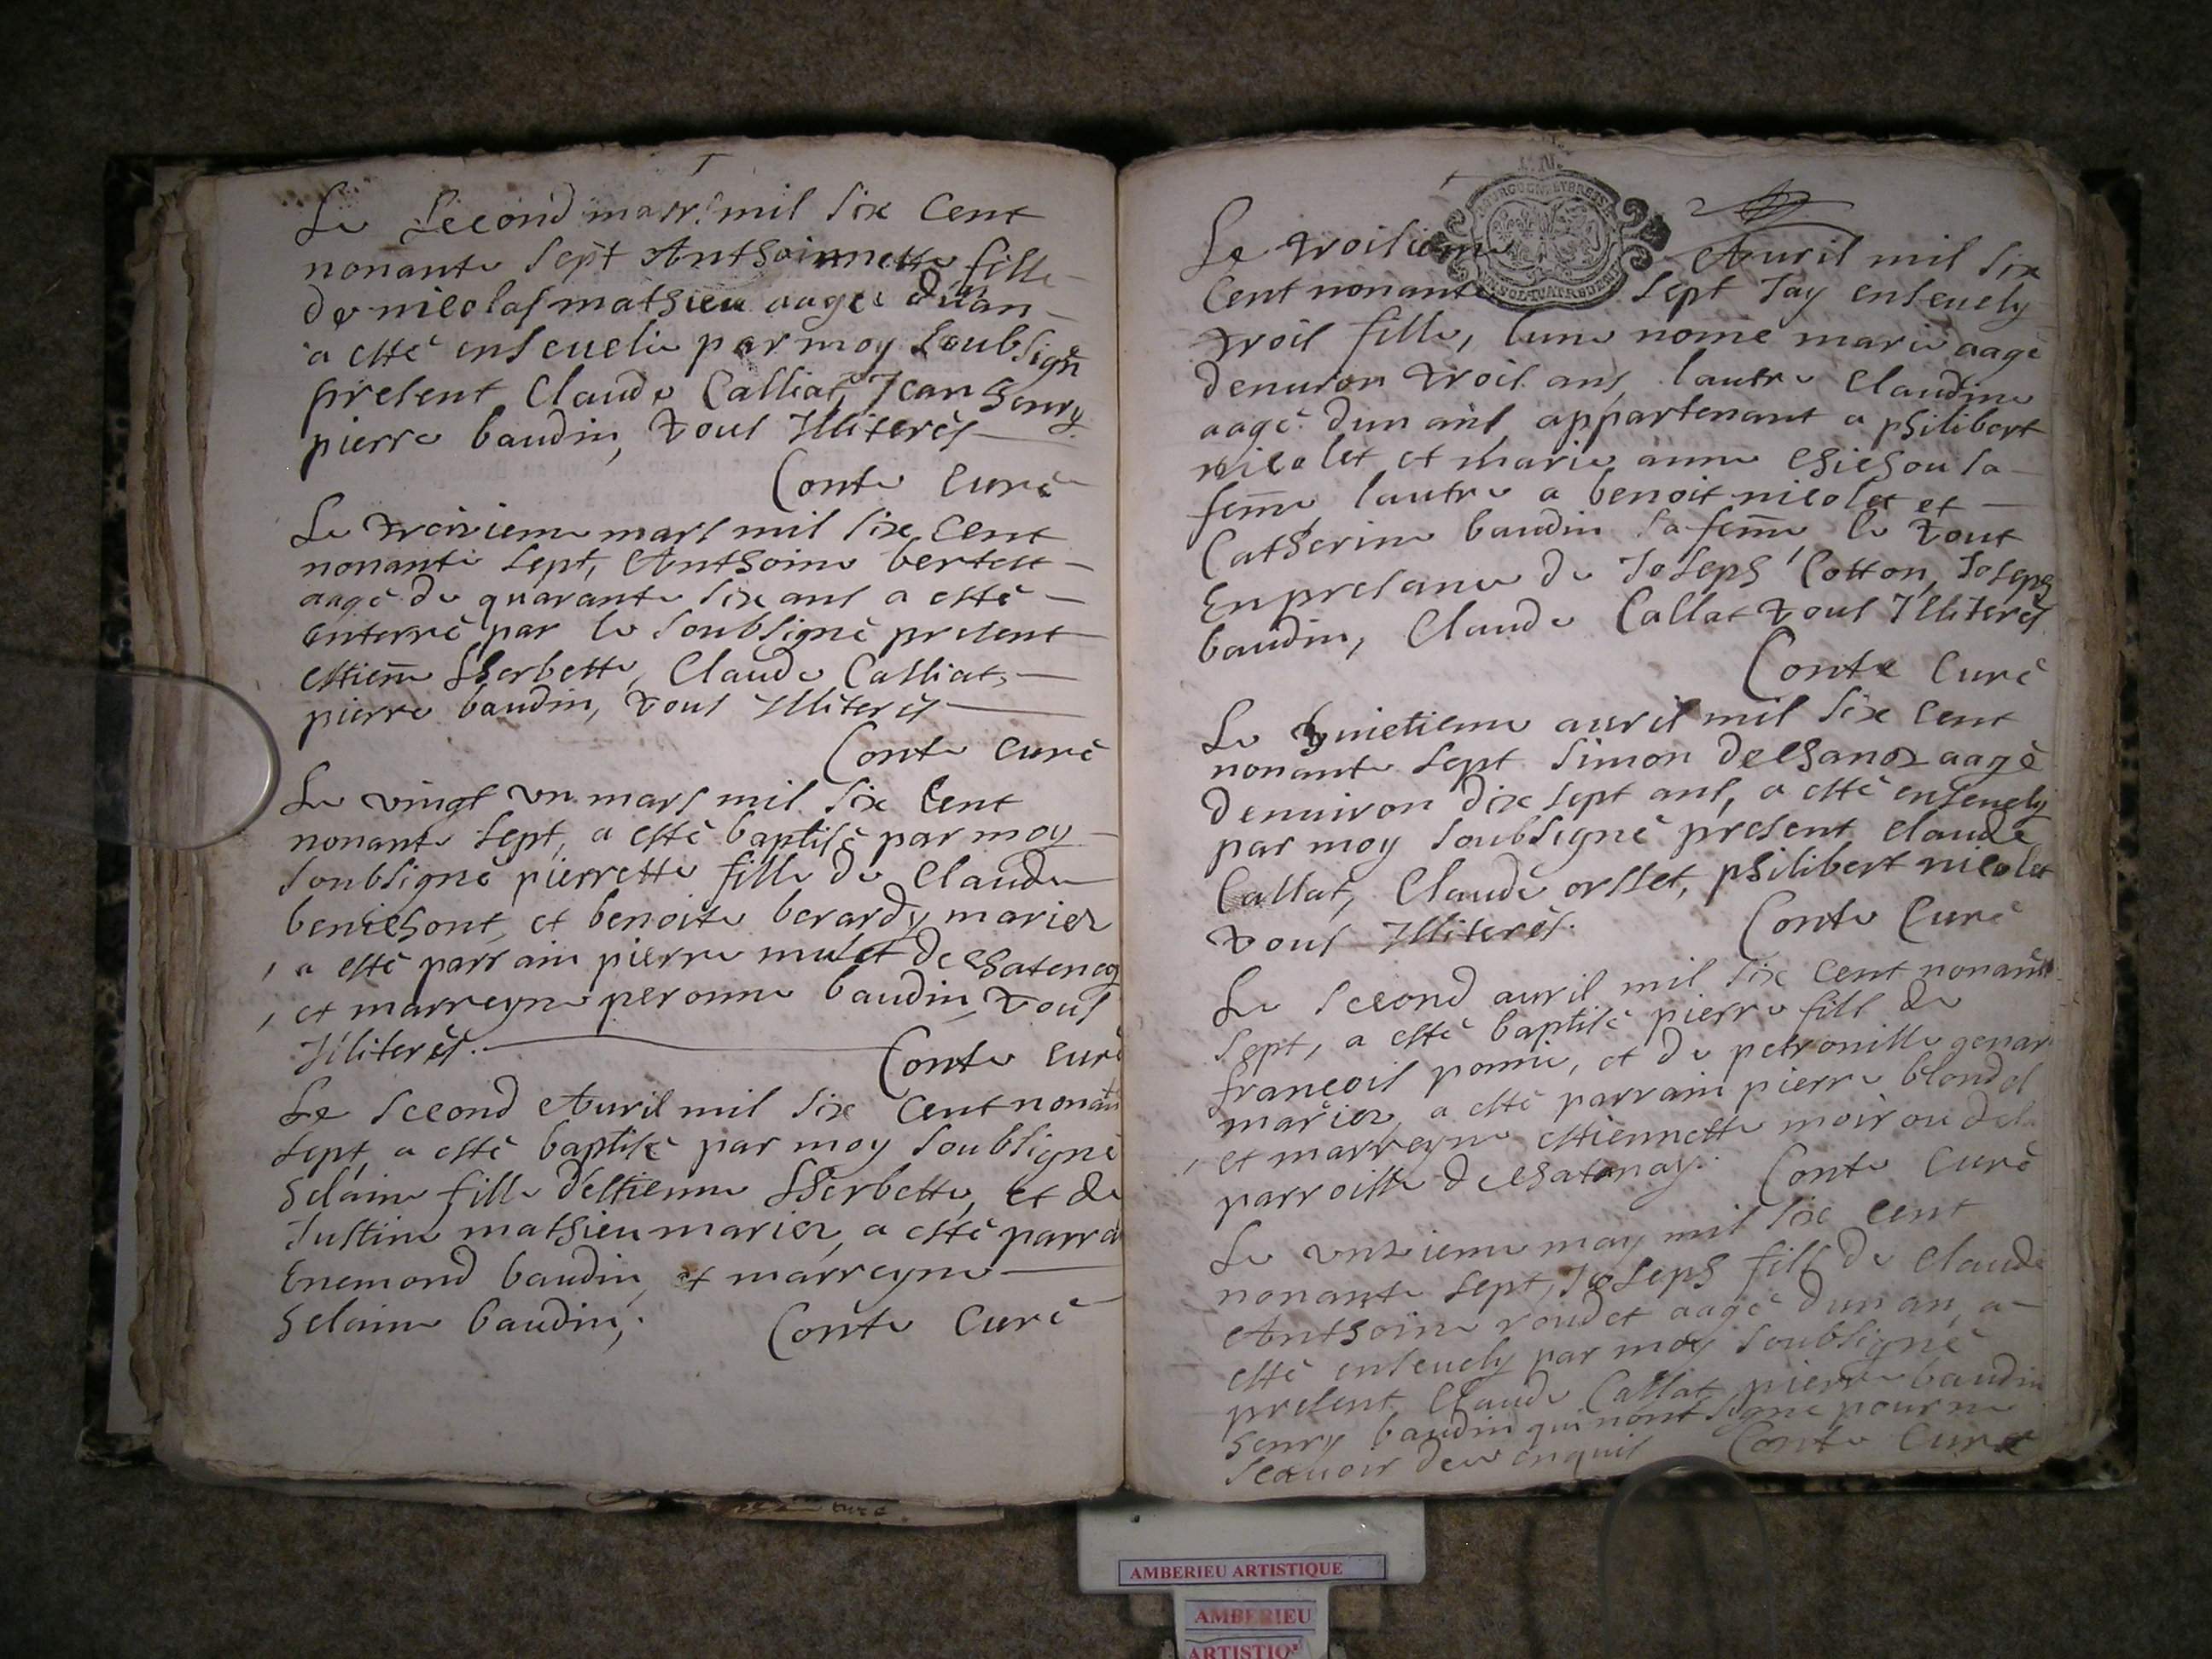 Le Second mars mil six Cent
nonante sept Anthoinnette fille
de nicolas mathieu aagee d'un an
a esté enseuelie par moy soubsigné
present Claude Calliat, Jean henry
pierre baudin, tous Illiterés
Conte curé
Le troisieme mars mil six Cent
nonante sept, Anthoine bertet
aagé de quarante six ans a esté
enterré par le soubsigné present
estienne Lherbette, Claude Calliat,
pierre baudin, tous Illiterés
Conte curé
Le vingt un mars mil six Cent
nonante sept, a esté baptisé par moy
soubsigné pierrette fille de Claude
benichont, et benoite berardy mariez
a esté parrain pierre mulet de Chatenay
et marreyne peronne baudin, tous
Illiterés.
Conte curé
Le second Auril mil six Cent nonante
sept, a esté baptisé par moy soubsigné
helaine fille d'estienne Lherbette, et de
Justine mathieu mariez, a esté parrain
Enemond baudin, et marreyne
helaine baudin,
Conte Curé
Le troisieme Auril mil six
Cent nonante sept Jay enseuely
trois fille, lune nomé marie aagé
denuiron trois ans, lautre Claudine
aagé dun ans, appartenant a philibert
nicolet et marie anne chichou sa
feme, lautre a benoit nicolet et
Catherine baudin sa feme le tout
En presance de Joseph Cotton, Joseph
baudin, Claude Callat tous Illiterés
Conte Curé
Le huictieme auril mil six cent
nonante sept Simon dechanoz aagé
denuiron dix sept ans, a esté enseuely
par moy soubsigné present claude
Callat, Claude orsset, philibert nicolet
tous Illiterés.
Conte Curé
Le second auril mil six Cent nonante
sept, a esté baptisé pierre fils de
françois pomie, et de petronille genar
mariez, a esté parrain pierre blondel
et marreyne estiennette moirou de la
parroisse de Chatonay.
Conte Curé
Le unzieme may mil six cent
nonante sept, Joseph fils de Claude
Anthoine roudet aagé dun an, a
esté enseuely par moy soubsigné
present Claude Callat, pierre baudin
henry baudin qui nont signé pour ne
scauoir deue enquis
Conte Curé
AMBERIEU ARTISTIQUE
AMBERIEU
ARTISTIQ